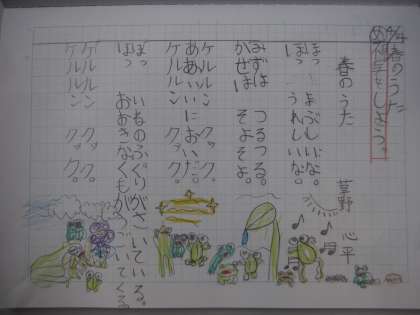 春のうた
め 視写をしよう。
春のうた
草野 心平
ほっ まぶしいな。
ほっ うれしいな。
みずは つるつる。
かぜは そよそよ。
ケルルン クック。
ああいいにおいだ。
ケルルン クック。
ほっ いぬのふぐりがさいている。
ほっ おおきなくもがうごいてくる。
ケルルン クック。
ケルルン クック。